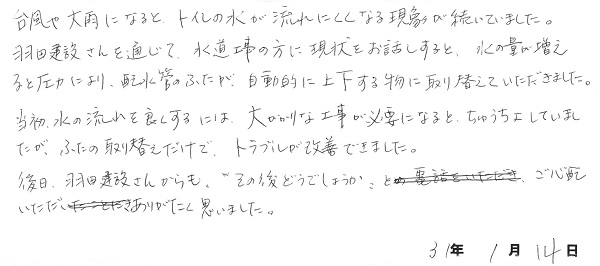 台風や大雨になると、トイレの水が流れにくくなる現象が続いていました。
羽田建設さんを通じて、水道工事の方に現状をお話しすると、水の量が増え
ると圧力により、配水管のふたが、自動的に上下する物に取り替えていただきました。
当初、水の流れを良くするには、大がかりな工事が必要になると、ちゅうちょしていまし
たが、ふたの取り替えだけで、トラブルが改善できました。
後日、羽田建設さんからも、"その後どうでしょうか"とのお電話をいただき、ご心配
いただいたことにありがたく思いました。
31年 1月 14日